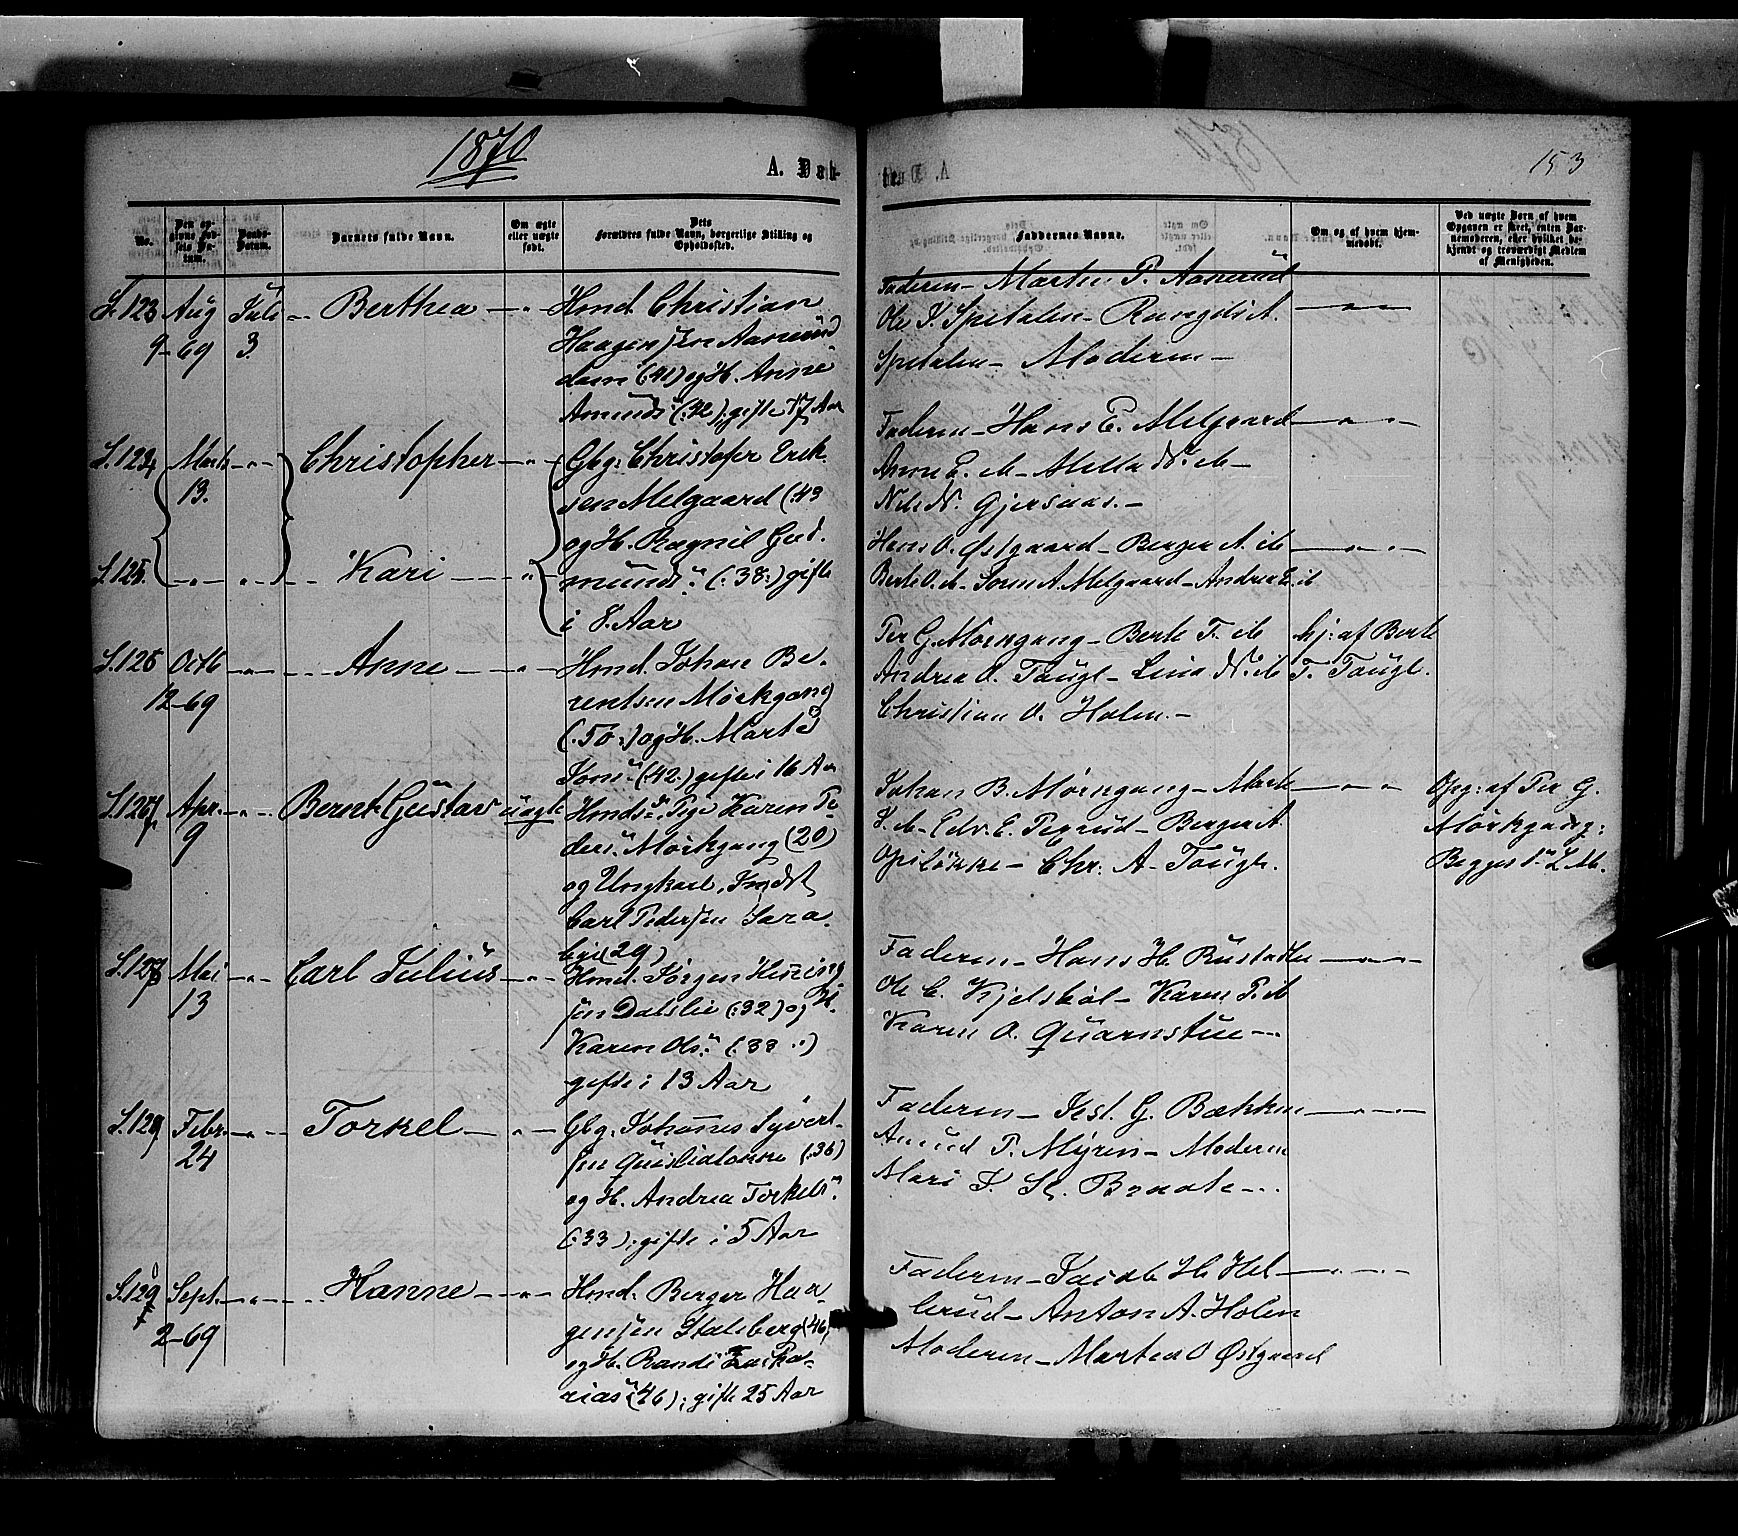 1870
A. Døb-
153
No.
Den opgivne Fødsels Datum.
Daabs-Datum.
Barnets fulde Navn.
Om ægte eller uægte født.
Dets Forældres fulde Navn, borgerlige Stilling og Opholdssted.
Faddernes Navne.
Om og af hvem hjemmedøbt.
Ved uægte Børn af hvem Opgaven er skeet, enten Barnemoderen, eller hvilket bekjendt og troværdigt Medlem af Menigheden.
S. 123 Aug 9-69 Juli 3. Berthea
Hmd. Christian
Haagensen Aanerud
(41) og H. Anne
Amunds (:42), gifte 17 Aar
Faderen - Marthe P. Aanerud
Ole J. Spitalen - Rangdi A.
Spitalen - Moderen -
S. 124 Marts 13. Christopher
Gbg: Christofer Erik-
sen Melgaard (43
og H. Ragnil Gud.
munds (:38:) gifte
i 8. Aar
Faderen - Hans E. Melgaard
Anne E. ib - Mella N. ib -
Nils N. Gjersaas. -
S. 125. Kari
Hans O. Østgaard - Berger A. ib
Berte O. ib - Soren A. Melgaard - Andrea E. ib
S. 126 Octb 12-69 Anne
Hmd. Johan Be-
rentsen Mørkgang
(:50:) og H. Marte
(:42:) gifte i 16 Aar
Per G. Mørkgang - Berte T. ib
Andrea O. Taugl - Lina N. ib
Christian O. Holen. -
hj: af Berte
T. Taugl.
S. 127 Apr. 9 Bernt Gustav uægte
Hmds. Pige Karen Pe-
ders. Mørkgang (20)
og Ungkarl, Indst
Carl Pedersen Sera
(29)
Johan B. Mørkgang - Marte
J. ib - Edv. E. Pegrud - Berger A.
Opsløkke - Chr. A. Taugl.
Opg: af Per G.
Mørkgang:
Begges 1ste L. M.
S. 128 Mai 13 Carl Julius
Hmd. Jørgen
sen Dalslie (:32) og H.
Karen Ols. (:33:)
gifte i 13 Aar
Faderen - Hans H. Rustadtu
Ole C. Kjelsbøl - Karen P. ib
Karen O. Quarnstue -
S. 129 Febr. 24 Torkel
Gbg. Johannes Syvert-
sen (:36)
og H. Andrea Torkels.
(:33); gifte i 5 Aar
Faderen - Kest. G. Bækken
Amund P. Myren - Moderen
Mari J. Braate -
S. 129 Sept. 2-69 Hanne
Hmd. Berger Haa-
gensen Stalsberg (46)
og H. Randi Zacha-
rias (46); gifte 25 Aar
Faderen - Jacob H. Hel
berud - Anton A. Holen
Moderen - Marthea O Østgaard